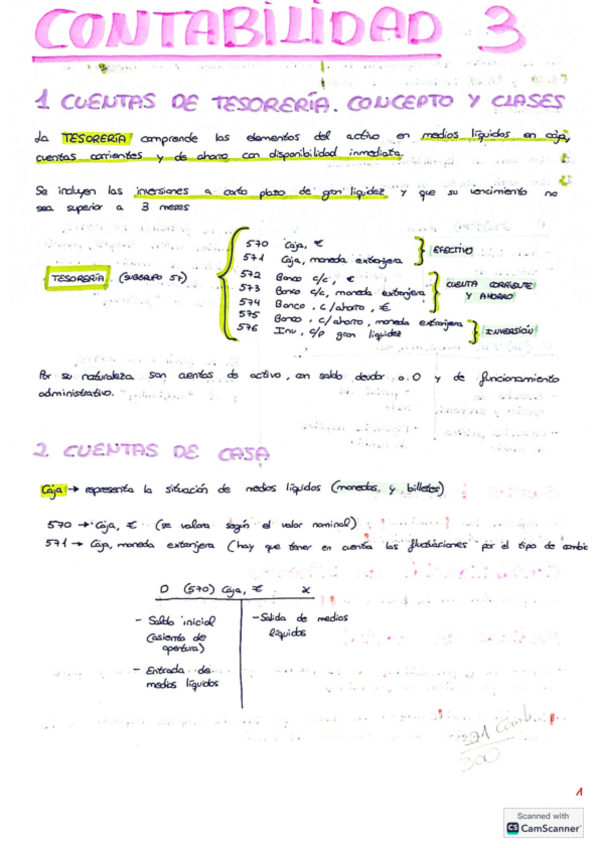 CONTABILIDAD 3
1. CUENTAS DE TESORERÍA. CONCEPTO Y CLASES
La TESORERÍA comprende los elementos del activo en medios líquidos en caja,
cuentas corrientes y de ahorro con disponibilidad inmediata.
Se incluyen las inversiones a corto plazo de gran liquidez y que su vencimiento no
sea superior a 3 meses
TESORERÍA (SUBGRUPO 57)
570 Caja, €
571 Caja, moneda extranjera
EFECTIVO
572 Banco c/c, €
573 Banco c/c, moneda extranjera
574 Banco, c/ahorro, €
575 Banco, c/ahorro, moneda extranjera
CUENTA CORRIENTE
Y AHORRO
576 Inv, c/p gran liquidez
INVERSIÓN
Por su naturaleza son cuentas de activo, con saldo deudor o 0 y de funcionamiento
administrativo.
2. CUENTAS DE CASA
Caja → representa la situación de medios líquidos (monedas y billetes)
570 → Caja, € (se valora según el valor nominal)
571 → Caja, moneda extranjera (hay que tener en cuenta las fluctuaciones por el tipo de cambio
D (570) Caja, € X
- Saldo inicial
(asiento de
apertura)
- Entrada de
medios líquidos
- Salida de medios
líquidos
300
1
Scanned with
CS CamScanner